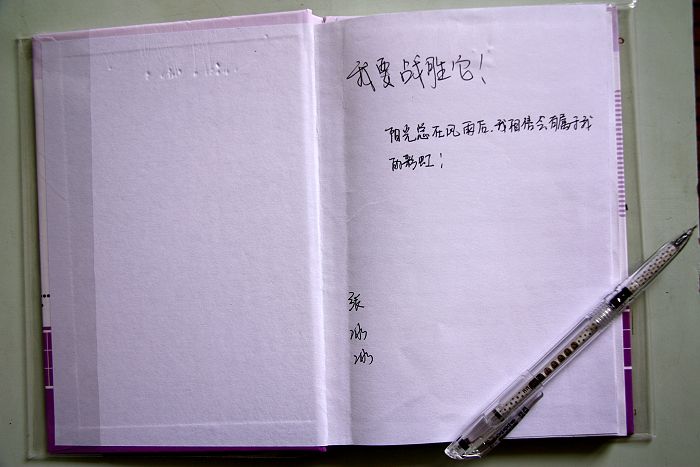 我要战胜它！
阳光总在风雨后，我相信会有属于我
的彩虹！
张
冰
冰